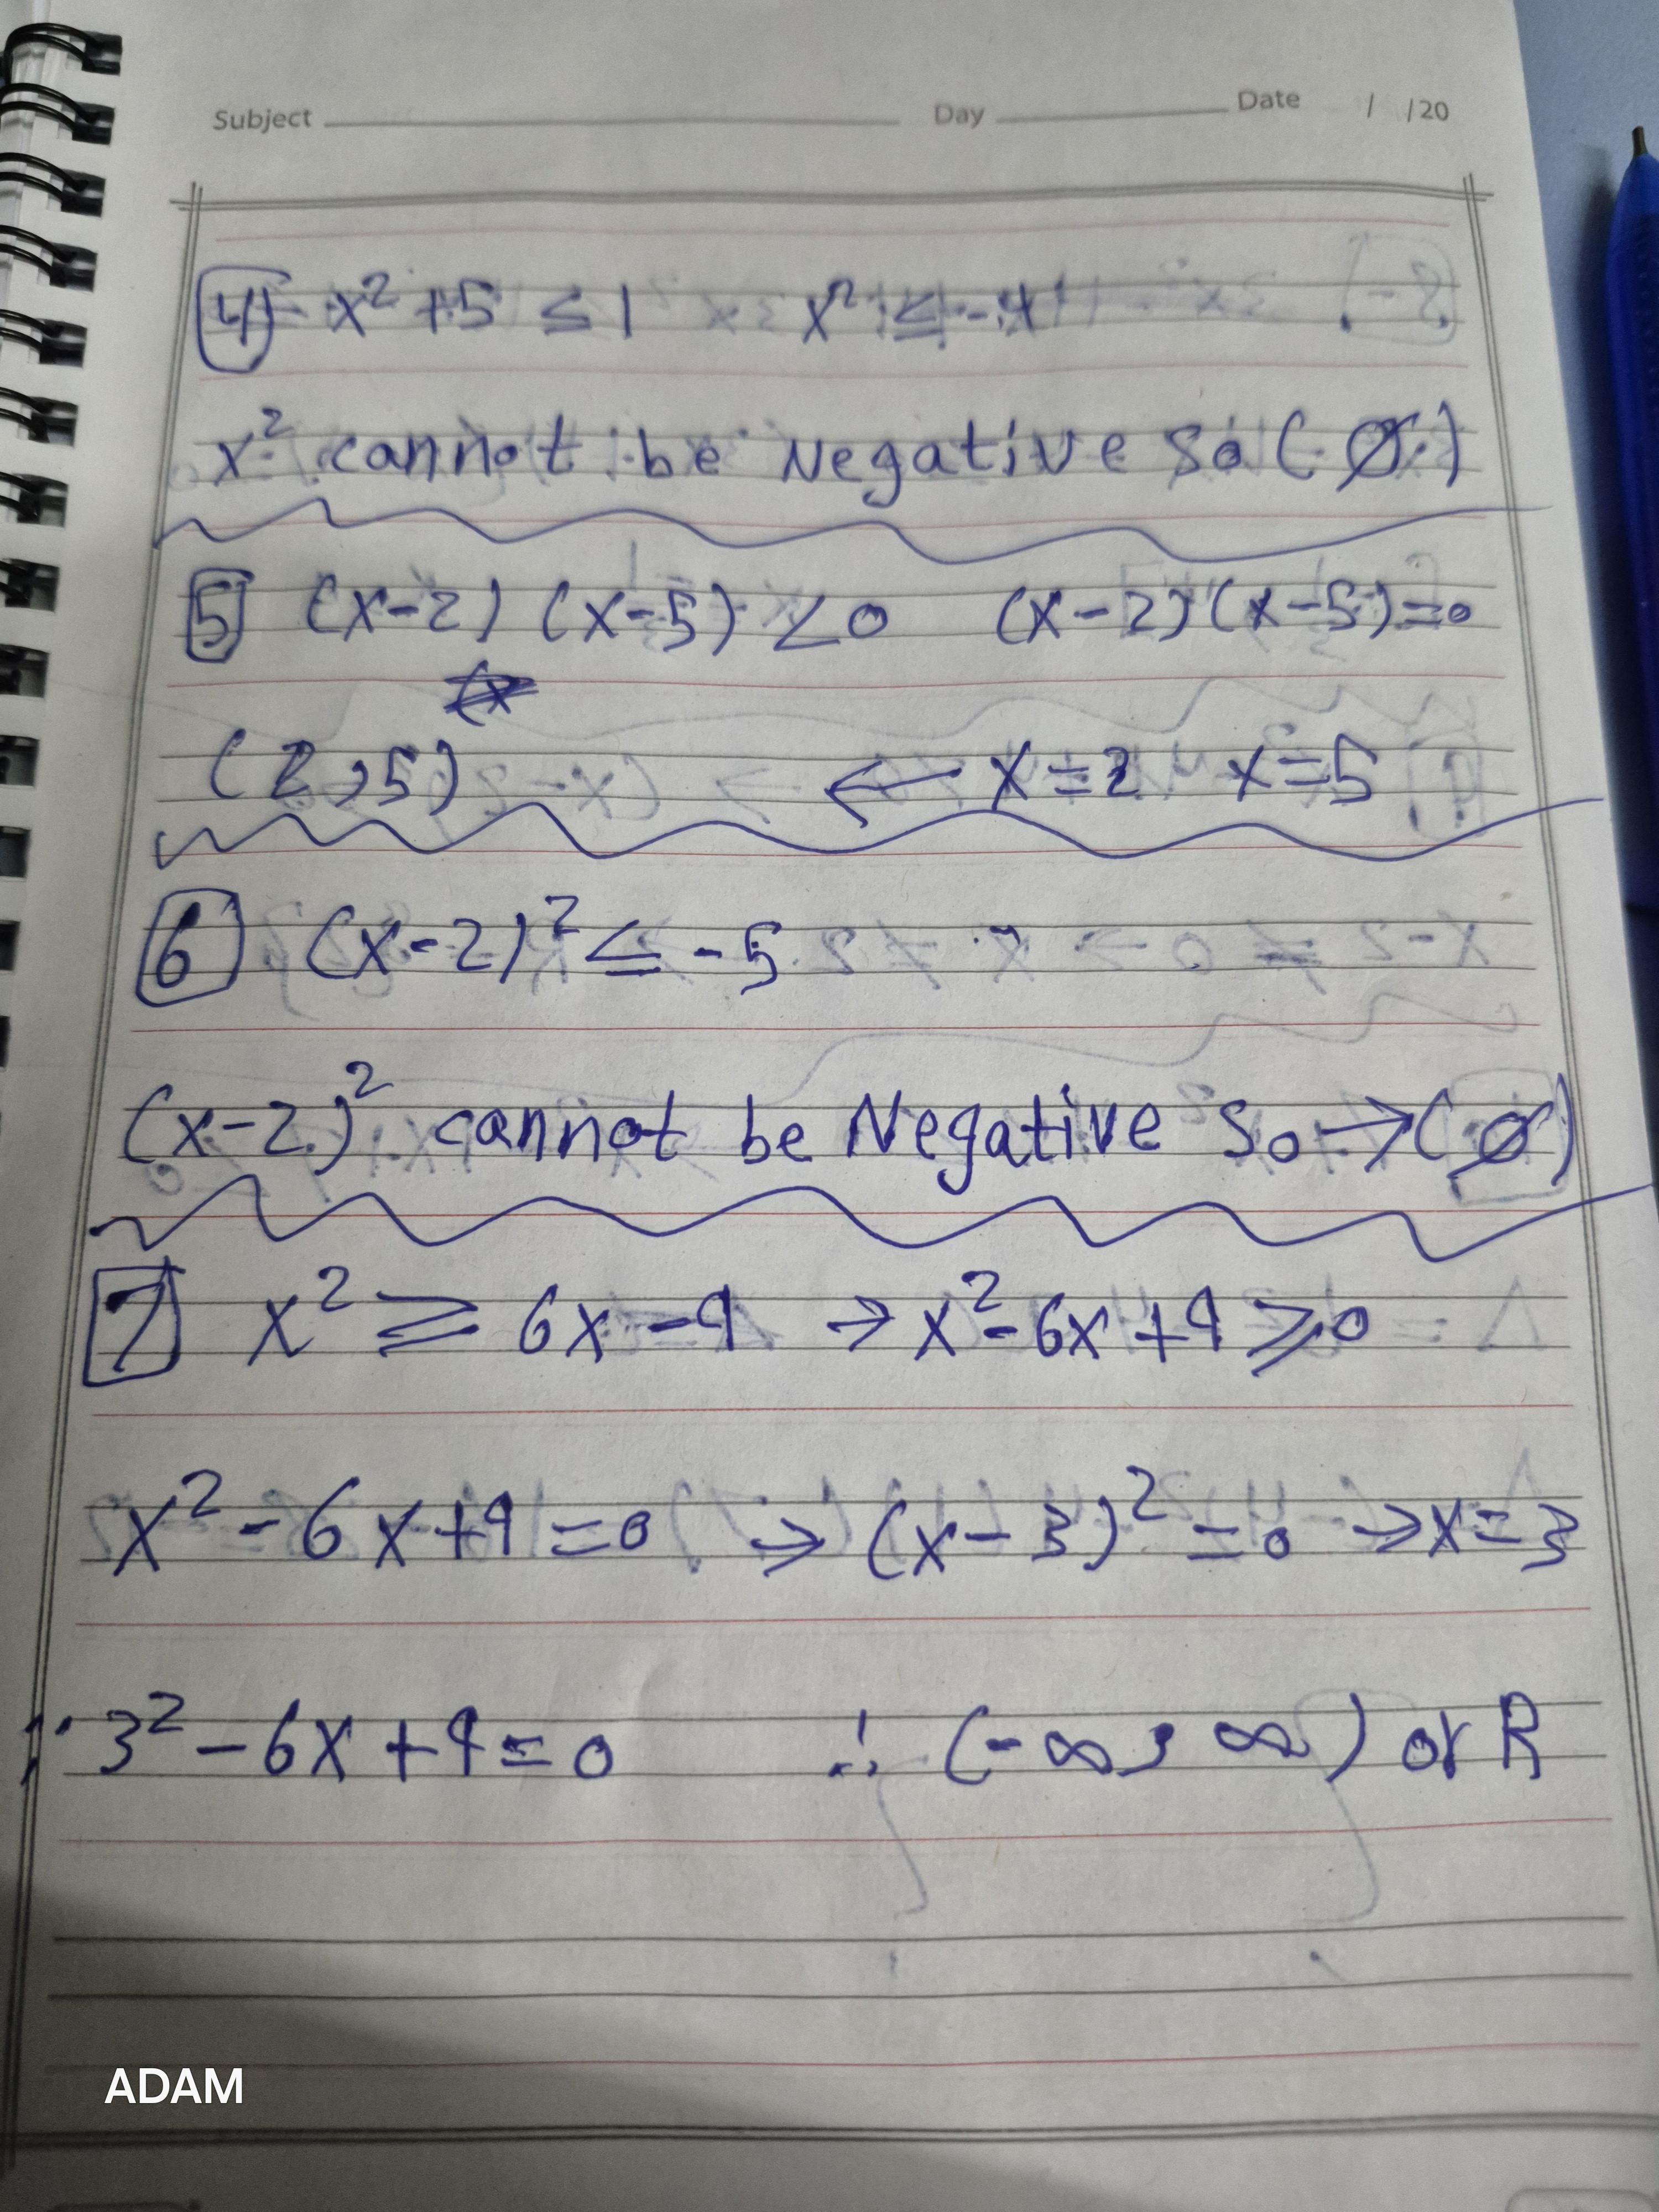 Subject Day Date / /20
4 x² + 5 ≤ 1 x² ≤ -4
x² cannot be Negative so (∅)
5 (x-2) (x-5) <0 (x-2)(x-5)=0
(2,5) ← x=2 x=5
6 (x-2)² ≤ -5
(x-2)² cannot be Negative so → (∅)
7 x² ≥ 6x-9 → x²-6x+9 ≥ 0
x²-6x+9=0 → (x-3)²=0 → x=3
∵ 3²-6x+9=0 ∴ (-∞, ∞) or R
ADAM